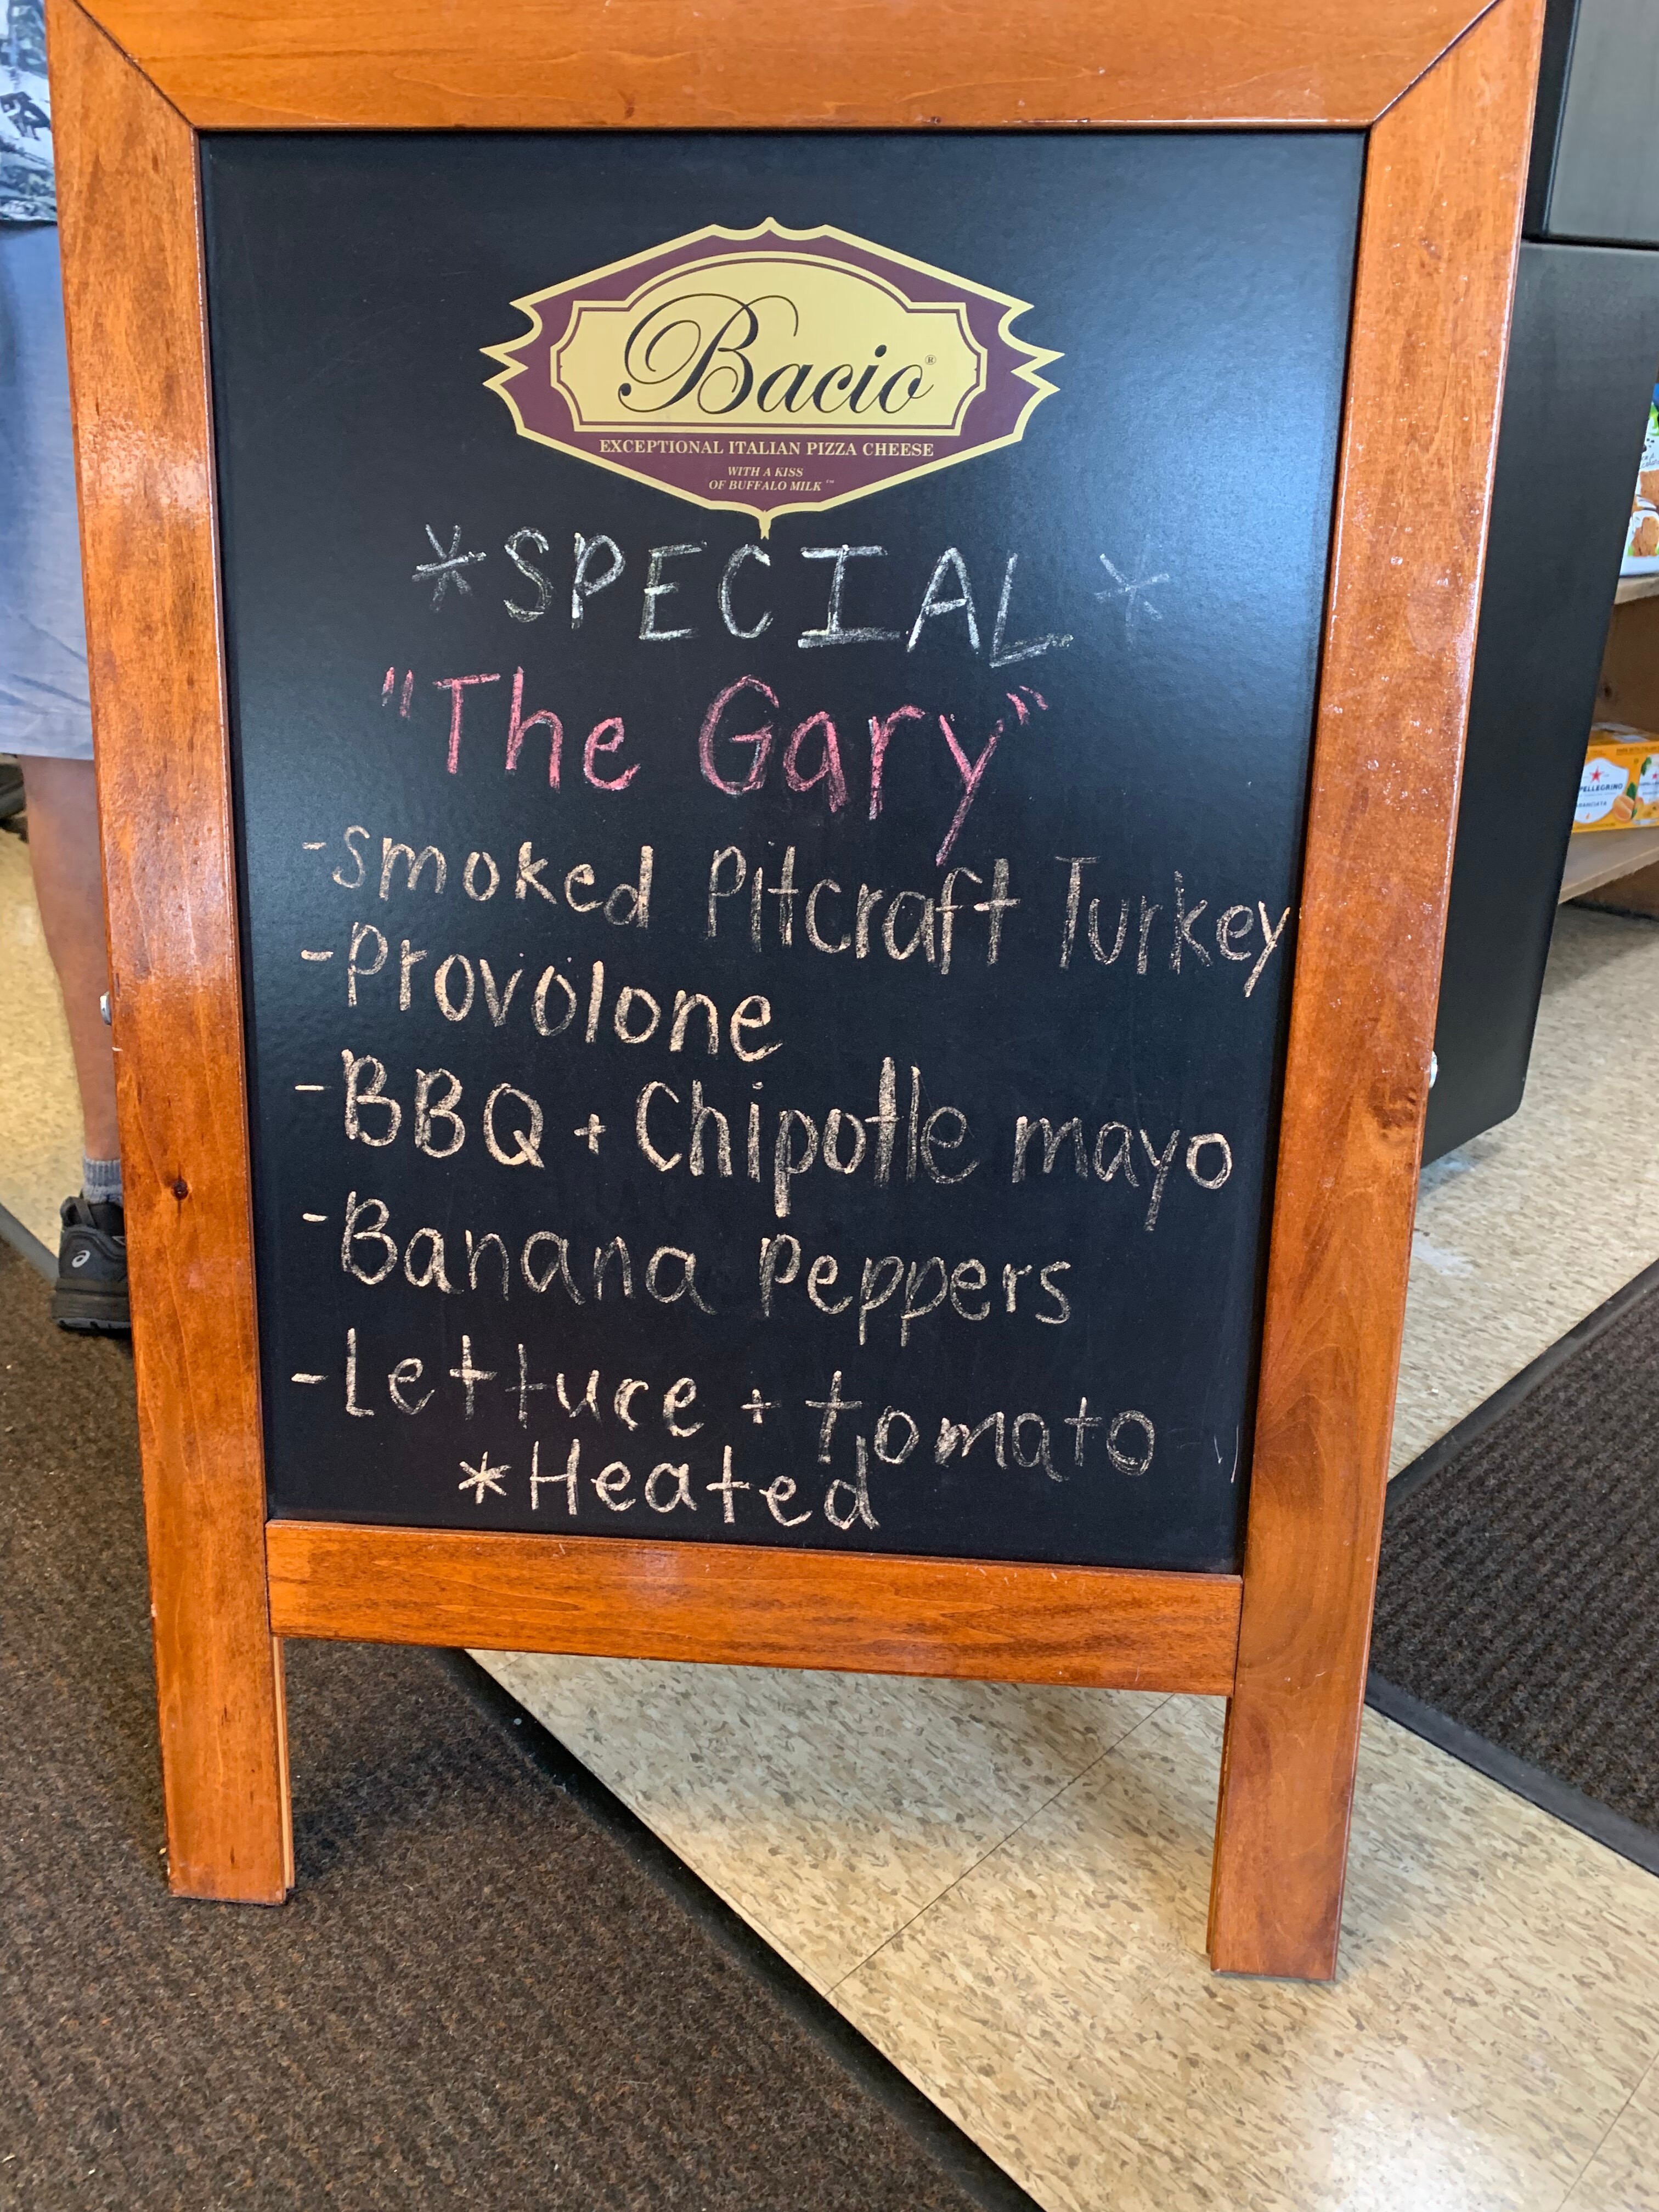 Bacio®
EXCEPTIONAL ITALIAN PIZZA CHEESE
WITH A KISS
OF BUFFALO MILK™
*SPECIAL*
"The Gary"
-smoked Pitcraft Turkey
-Provolone
-BBQ + Chipotle mayo
-Banana Peppers
-Lettuce + tomato
*Heated
PELLEGRINO